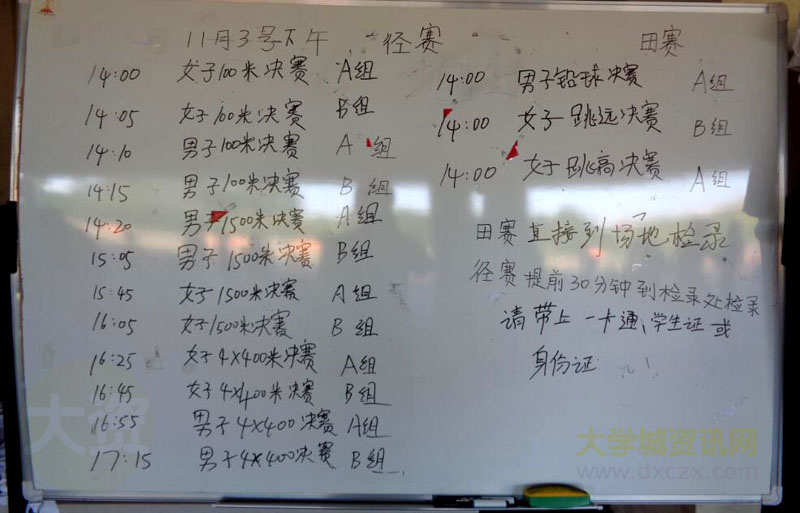 11月3号下午 径赛
14:00 女子100米决赛 A组
14:05 女子100米决赛 B组
14:10 男子100米决赛 A组
14:15 男子100米决赛 B组
14:20 男子1500米决赛 A组
15:05 男子1500米决赛 B组
15:45 女子1500米决赛 A组
16:05 女子1500米决赛 B组
16:25 女子4X400米决赛 A组
16:45 女子4X400米决赛 B组
16:55 男子4X400决赛 A组
17:15 男子4X400决赛 B组
田赛
14:00 男子铅球决赛 A组
14:00 女子跳远决赛 B组
14:00 女子跳高决赛 A组
田赛直接到场地检录
径赛提前30分钟到检录处检录
请带上一卡通、学生证或
身份证
大资
大学城资讯网
www.dxczx.com